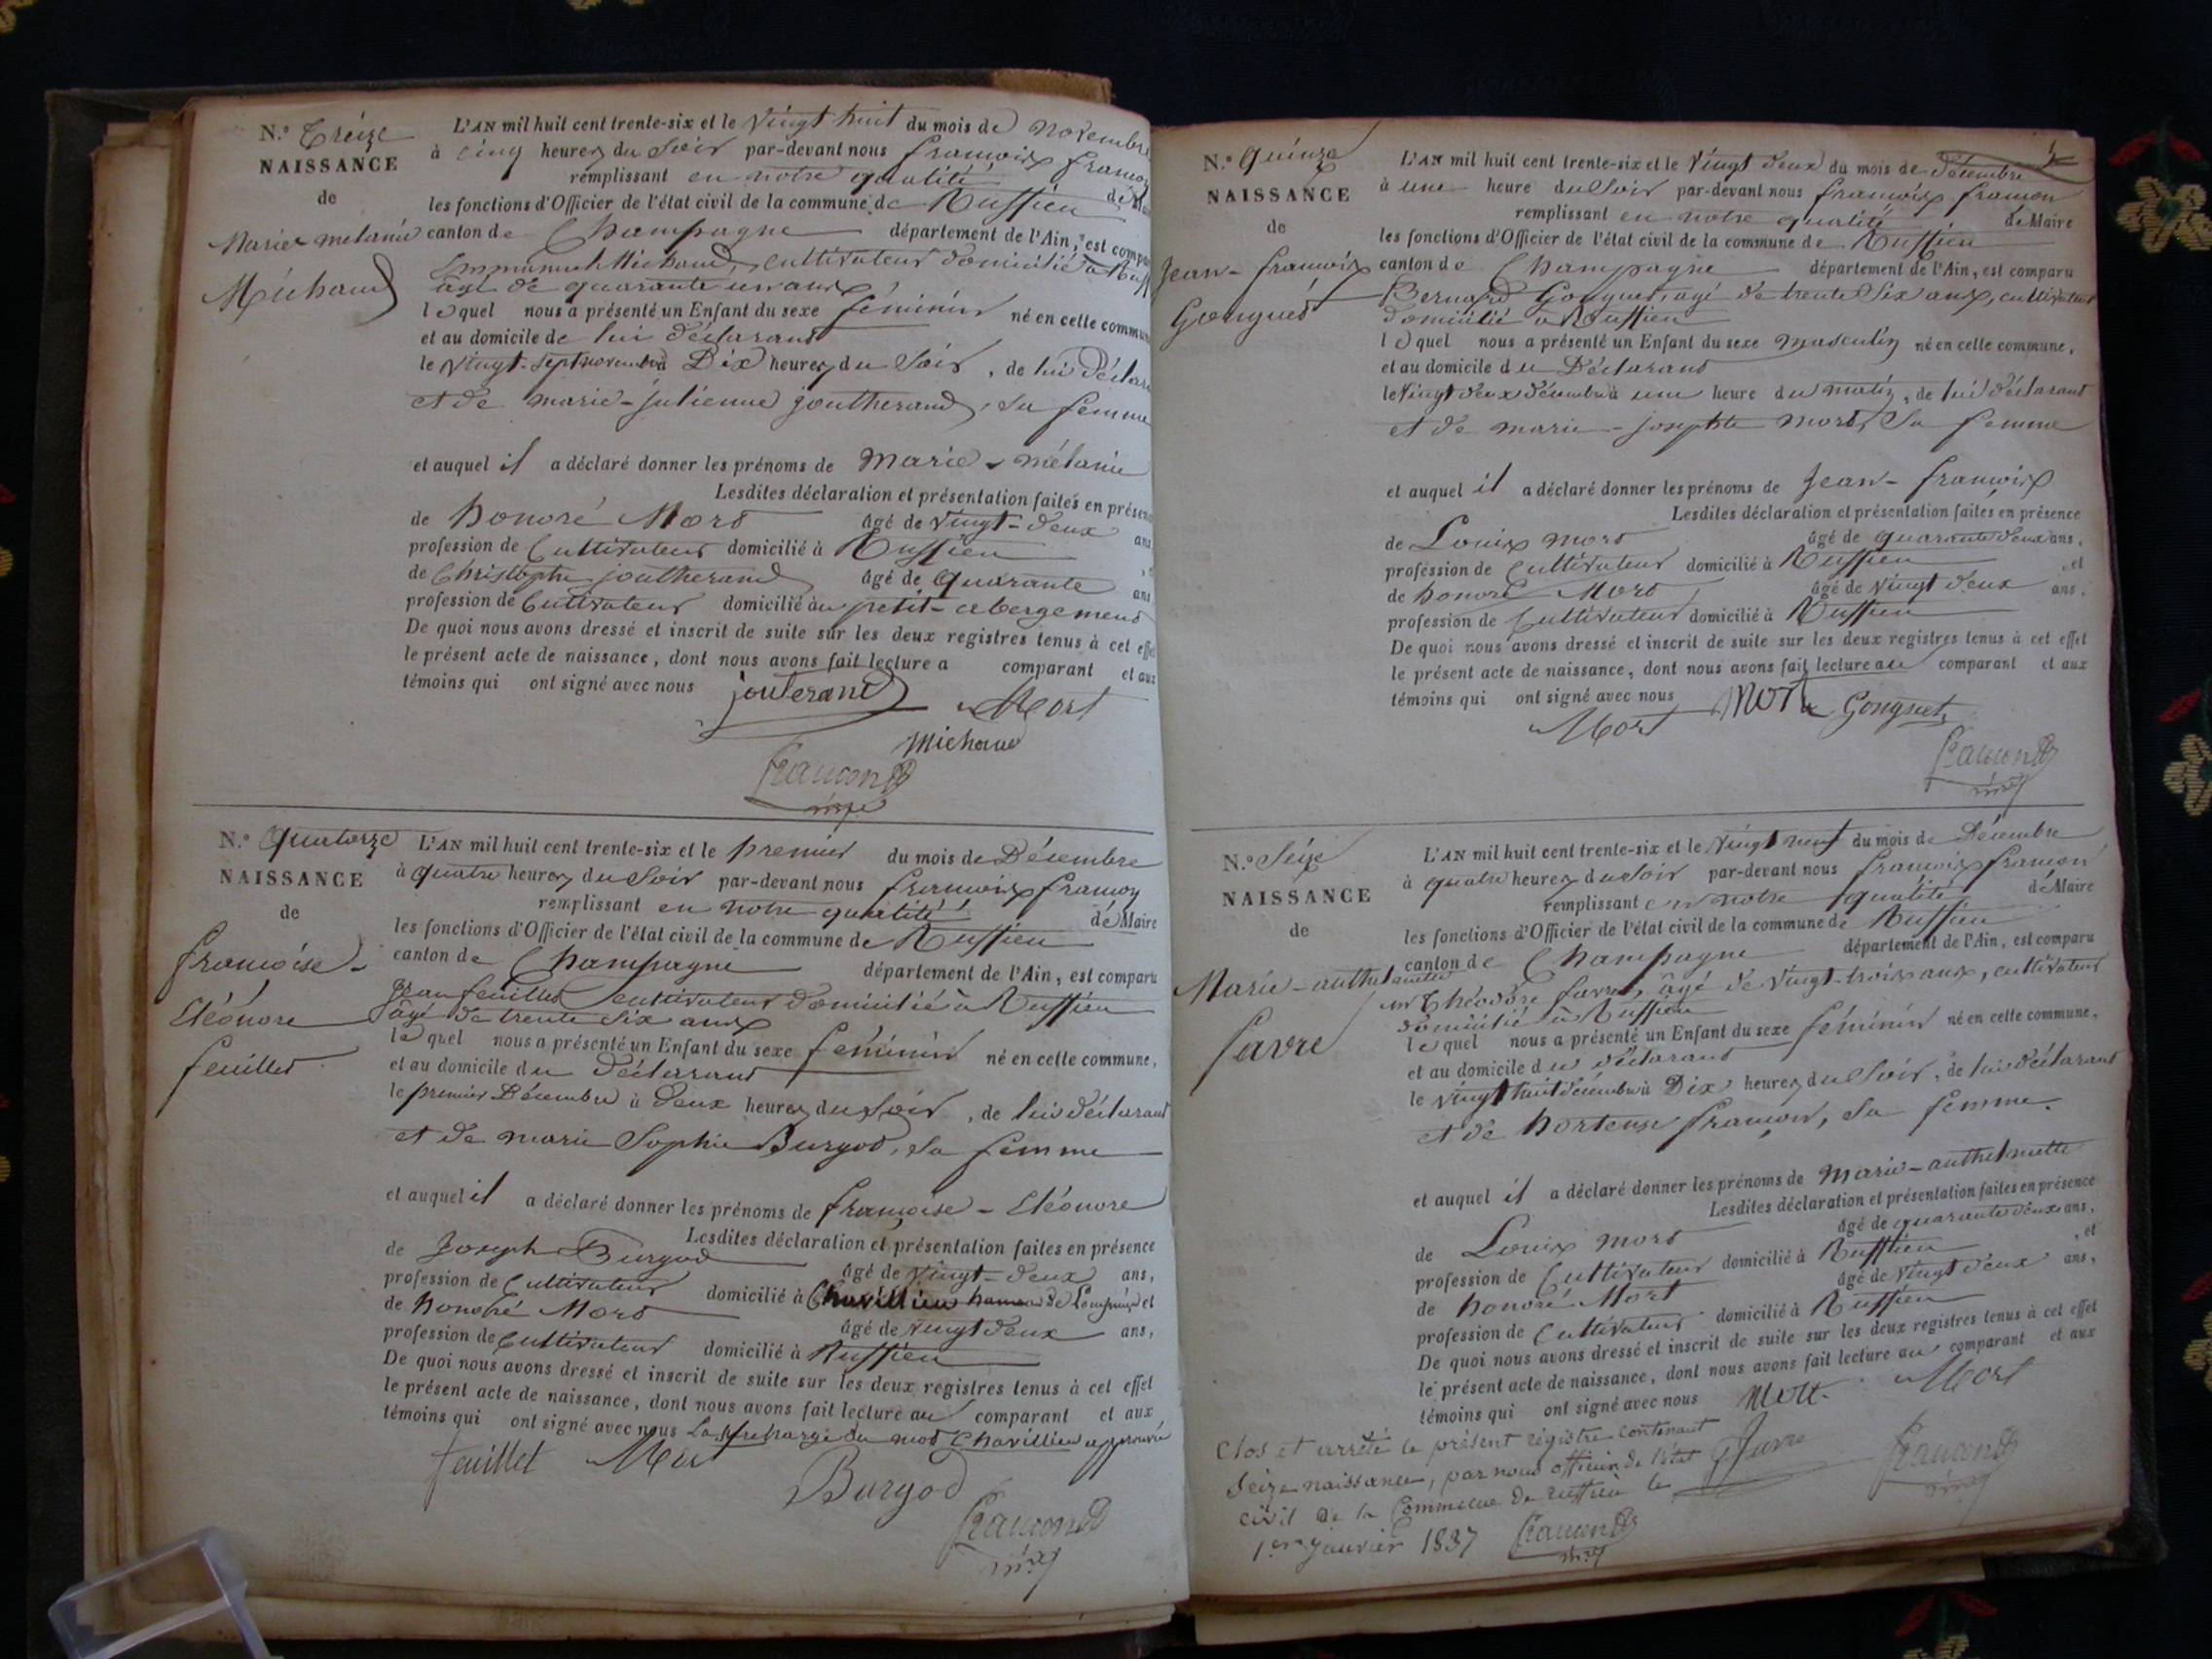 N.º Treize
NAISSANCE
de
Marie mélanie
Michaud
L'AN mil huit cent trente-six et le vingt huit du mois de novembre
à cinq heures du soir par-devant nous françois francon
remplissant en notre qualité de
les fonctions d'Officier de l'état civil de la commune de Ruffieu
canton de Champagne département de l'Ain, est compa
Emmanuel Michaud, cultivateur domicilié à Ruff
agé de quarante un ans
lequel nous a présenté un Enfant du sexe féminin né en cette commune
et au domicile de lui déclarant
le vingt-sept novembre à Dix heures du soir, de lui déclara
et de marie-julienne joutherand, sa femme
et auquel il a déclaré donner les prénoms de Marie-mélanie
Lesdites déclaration et présentation faites en présen
de honoré Mort âgé de vingt-deux ans
profession de Cultivateur domicilié à Ruffieu
de Christophe joutherand âgé de quarante ans
profession de Cultivateur domicilié au petit-abergement
De quoi nous avons dressé et inscrit de suite sur les deux registres tenus à cet effet
le présent acte de naissance, dont nous avons fait lecture a comparant et aux
témoins qui ont signé avec nous jouterand Mort
Michaud
francond
mre
N.º Quatorze
NAISSANCE
de
françoise-
Eléonore
feuillet
L'AN mil huit cent trente-six et le premier du mois de Décembre
à quatre heures du soir par-devant nous françois francon
remplissant en notre qualité de Maire
les fonctions d'Officier de l'état civil de la commune de Ruffieu
canton de Champagne département de l'Ain, est comparu
Jean feuillet cultivateur domicilié à Ruffieu
âgé de trente six ans
lequel nous a présenté un Enfant du sexe féminin né en cette commune,
et au domicile du Déclarant
le premier Décembre à deux heures du soir, de lui déclarant
et de marie Sophie Burgod, sa femme
et auquel il a déclaré donner les prénoms de françoise-Eléonore
Lesdites déclaration et présentation faites en présence
de Joseph Burgod âgé de vingt-deux ans,
profession de Cultivateur domicilié à Chavillieu hameau de et
de honoré Mort âgé de vingt deux ans,
profession de Cultivateur domicilié à Ruffieu
De quoi nous avons dressé et inscrit de suite sur les deux registres tenus à cet effet
le présent acte de naissance, dont nous avons fait lecture au comparant et aux
témoins qui ont signé avec nous La surcharge du mot Chavillieu approuvée
feuillet Mort
Burgod
francond
mre
N.º Quinze
NAISSANCE
de
Jean-françois
Gonguet
L'AN mil huit cent trente-six et le vingt deux du mois de décembre
à une heure du soir par-devant nous françois francon
remplissant en notre qualité de Maire
les fonctions d'Officier de l'état civil de la commune de Ruffieu
canton de Champagne département de l'Ain, est comparu
Bernard Gonguet, agé de trente six ans, cultivateur
domicilié à Ruffieu
lequel nous a présenté un Enfant du sexe masculin né en cette commune,
et au domicile du Déclarant
le vingt deux décembre à une heure du matin, de lui déclarant
et de marie-josephte mort, sa femme
et auquel il a déclaré donner les prénoms de Jean-françois
Lesdites déclaration et présentation faites en présence
de Louis mort âgé de quarante deux ans,
profession de Cultivateur domicilié à Ruffieu, et
de honoré Mort âgé de vingt deux ans,
profession de Cultivateur domicilié à Ruffieu
De quoi nous avons dressé et inscrit de suite sur les deux registres tenus à cet effet
le présent acte de naissance, dont nous avons fait lecture au comparant et aux
témoins qui ont signé avec nous Mort Gonguet
Mort
francond
mre
N.º Seize
NAISSANCE
de
Marie-anthelmette
favre
L'AN mil huit cent trente-six et le vingt neuf du mois de Décembre
à quatre heures du soir par-devant nous françois francon
remplissant en notre qualité de Maire
les fonctions d'Officier de l'état civil de la commune de Ruffieu
canton de Champagne département de l'Ain, est comparu
Théodore favre, âgé de vingt-trois ans, cultivateur
domicilié à Ruffieu
lequel nous a présenté un Enfant du sexe féminin né en cette commune,
et au domicile du déclarant
le vingt huit décembre à Dix heures du soir, de lui déclarant
et de hortense francon, sa femme.
et auquel il a déclaré donner les prénoms de marie-anthelmette
Lesdites déclaration et présentation faites en présence
de Louis mort âgé de quarante deux ans,
profession de Cultivateur domicilié à Ruffieu, et
de honoré Mort âgé de vingt deux ans,
profession de Cultivateur domicilié à Ruffieu
De quoi nous avons dressé et inscrit de suite sur les deux registres tenus à cet effet
le présent acte de naissance, dont nous avons fait lecture au comparant et aux
témoins qui ont signé avec nous Mort. Mort
favre francond
mre
Clos et arrêté le présent régistre contenant
seize naissances, par nous officier de l'état
civil de la Commune de ruffieu le
1er janvier 1837 francond
mre